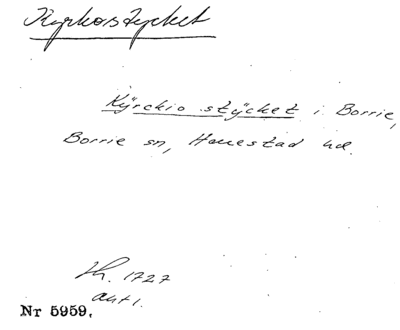 Kyrkostycket
Kÿrckio stÿcket i Borrie,
Borrie sn, Herrestad hd.
Th. 1727
akt 1.
Nr 5959.